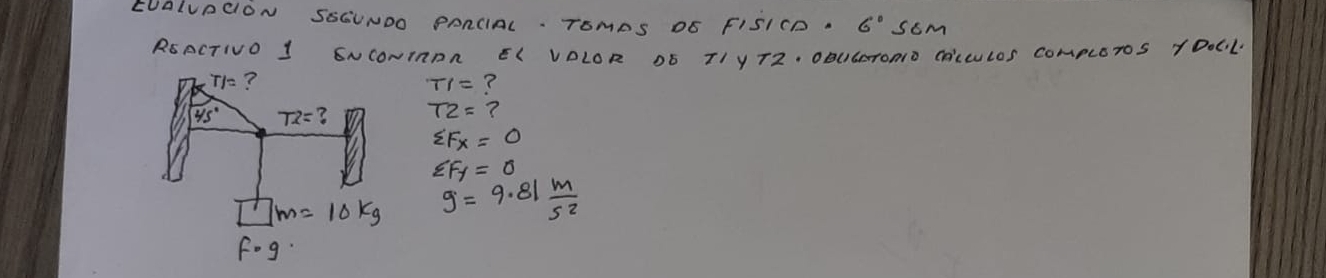 EVALUACIÓN SEGUNDO PARCIAL. TEMAS DE FISICA. 6° SEM
REACTIVO 1 ENCONTRAR EL VALOR DE T1 Y T2. OBLIGATORIO CÁLCULOS COMPLETOS Y
T1=?
45°
T2=?
m= 10 Kg
T1=?
T2=?
ΣFx = 0
ΣFy = 0
g= 9.81 m/s2